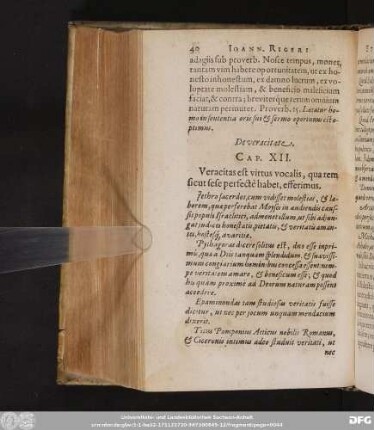 40 IOANN. RIGERI
adagiis sub proverb. Nosce tempus, monet,
tantam vim habere opportunitatem, ut ex ho-
nesto inhonestum, ex damno lucrum, ex vo-
luptate molestiam, & beneficio maleficium
faciat, & contra; breviterque rerum omnium
naturam permutet. Proverb. 15. Lætatur ho-
mo in sententia oris sui & sermo opportunus est o-
ptimus.
De veracitate.
CAP. XII.
Veracitas est virtus vocalis, qua rem
sicut sese perfectè habet, efferimus.
Jethro sacerdos, cum vidisset molestias, & la-
borem, qua perferebat Moyses in audiendis caus-
sis populi Israelitici, admonet illum, ut sibi adjun-
gat judices honestate pietatis, & veritatis aman-
tes, hostesque avaritiæ.
Pythagoras dicere solitus est, duo esse inpri-
mis, quæ à Diis tanquam splendidum, & suavissi-
mum
nempe veritatem amare, & beneficum esse; & quod
proxime ad Deorum naturam possent
accedere.
Epaminondas tam studiosus veritatis fuisse
dicitur, ut nec per jocum unquam mendacium
dixerit.
Titus Pomponius Atticus nobilis Romanus,
& Ciceronis intimus adeo studuit veritati, ut
nec
Universitäts- und Landesbibliothek Sachsen-Anhalt
DFG